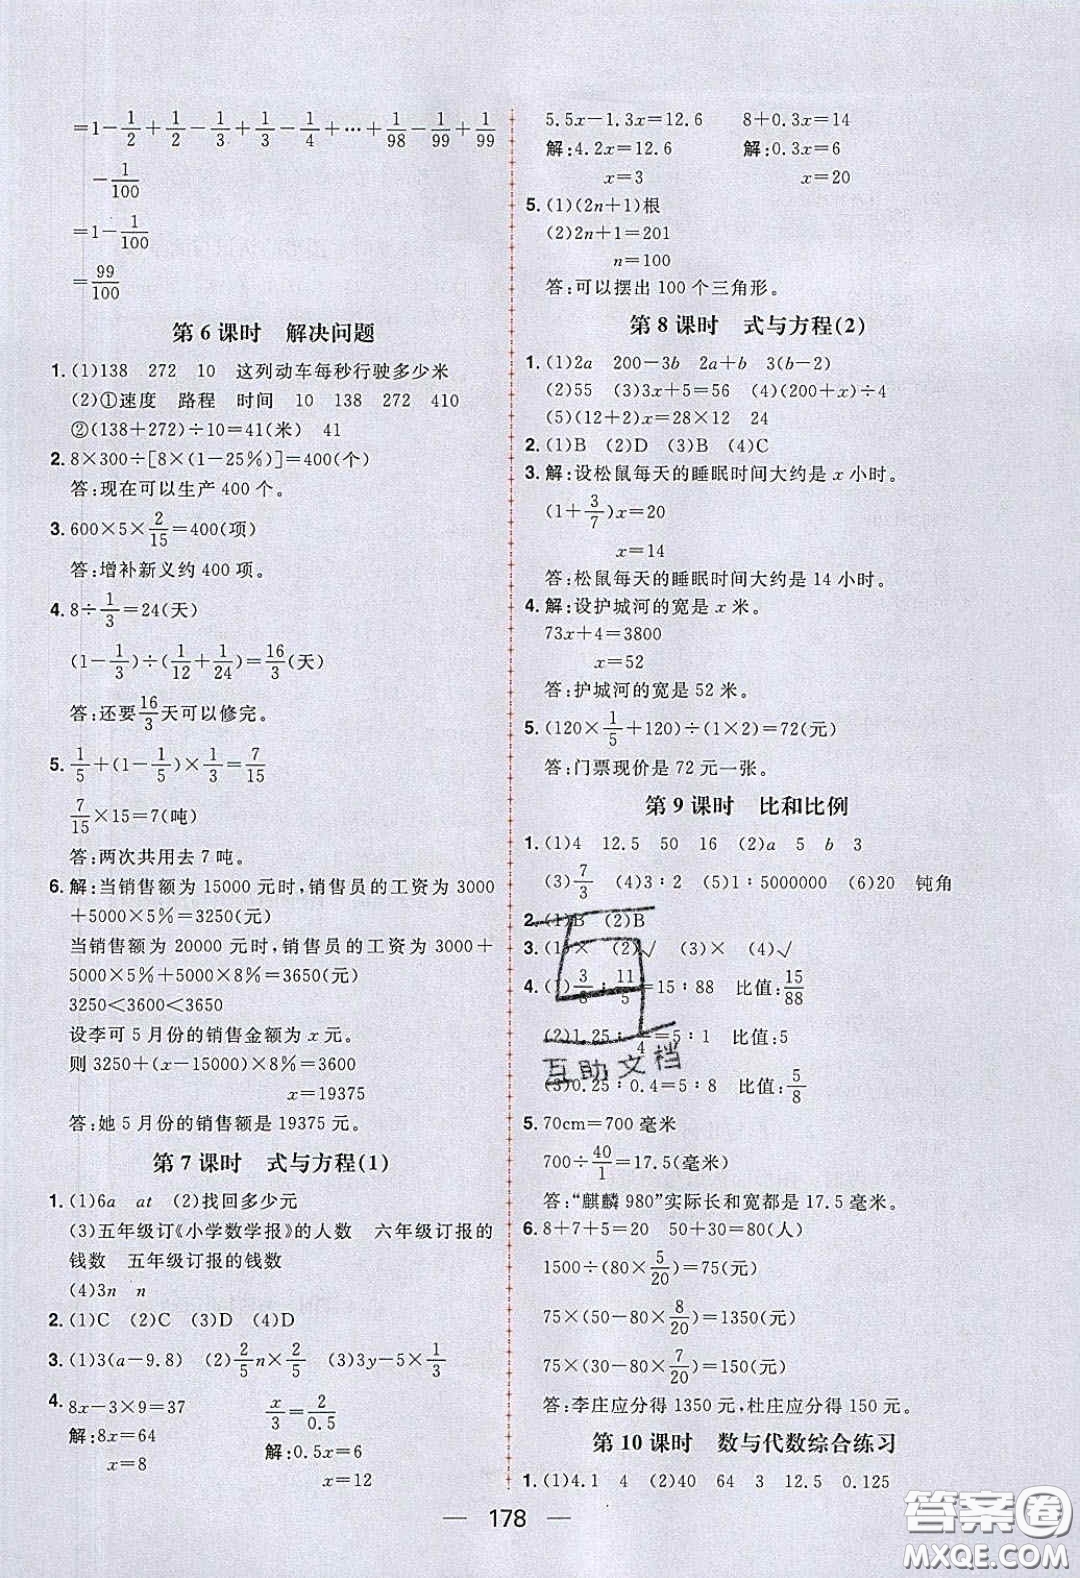 =1-1/2+1/2-1/3+1/3-1/4+…+1/98-1/99+1/99
-1/100
=1-1/100
=99/100
第6课时 解决问题
1.(1)138 272 10 这列动车每秒行驶多少米
(2)①速度 路程 时间 10 138 272 410
②(138+272)÷10=41(米) 41
2.8×300÷[8×(1-25%)]=400(个)
答:现在可以生产400个。
3.600×5×2/15=400(项)
答:增补新义约400项。
4.8÷1/3=24(天)
(1-1/3)÷(1/12+1/24)=16/3(天)
答:还要16/3天可以修完。
5.1/5+(1-1/5)×1/3=7/15
7/15×15=7(吨)
答:两次共用去7吨。
6.解:当销售额为15000元时,销售员的工资为3000
+5000×5%=3250(元)
当销售额为20000元时,销售员的工资为3000+
5000×5%+5000×8%=3650(元)
3250<3600<3650
设李可5月份的销售金额为x元。
则3250+(x-15000)×8%=3600
x=19375
答:她5月份的销售额是19375元。
第7课时 式与方程(1)
1.(1)6a at (2)找回多少元
(3)五年级订《小学数学报》的人数 六年级订报的
钱数 五年级订报的钱数
(4)3n n
2.(1)C (2)C (3)D (4)D
3.(1)3(a-9.8) (2)2/5n×2/5 (3)3y-5×1/3
4.8x-3×9=37 x/3=2/0.5
解:8x=64 解:0.5x=6
x=8 x=12
5.5x-1.3x=12.6 8+0.3x=14
解:4.2x=12.6 解:0.3x=6
x=3 x=20
5.(1)(2n+1)根
(2)2n+1=201
n=100
答:可以摆出100个三角形。
第8课时 式与方程(2)
1.(1)2a 200-3b 2a+b 3(b-2)
(2)55 (3)3x+5=56 (4)(200+x)÷4
(5)(12+2)x=28×12 24
2.(1)B (2)D (3)B (4)C
3.解:设松鼠每天的睡眠时间大约是x小时。
(1+3/7)x=20
x=14
答:松鼠每天的睡眠时间大约是14小时。
4.解:设护城河的宽是x米。
73x+4=3800
x=52
答:护城河的宽是52米。
5.(120×1/5+120)÷(1×2)=72(元)
答:门票现价是72元一张。
第9课时 比和比例
1.(1)4 12.5 50 16 (2)a 5 b 3
(3)7/3 (4)3:2 (5)1:5000000 (6)20 钝角
2.(1)B (2)B
3.(1)× (2)√ (3)× (4)√
4.(1)3/8:11/5=15:88 比值:15/88
(2)1.25: /4=5:1 比值:5
(3)0.25:0.4=5:8 比值:5/8
互助文档
5.70cm=700毫米
700÷40/1=17.5(毫米)
答:“麒麟980”实际长和宽都是17.5毫米。
6.8+7+5=20 50+30=80(人)
1500÷(80×5/20)=75(元)
75×(50-80×8/20)=1350(元)
75×(30-80×7/20)=150(元)
答:李庄应分得1350元,杜庄应分得150元。
第10课时 数与代数综合练习
1.(1)4.1 4 (2)40 64 3 12.5 0.125
— 178 —
答案圈
MXQE.COM